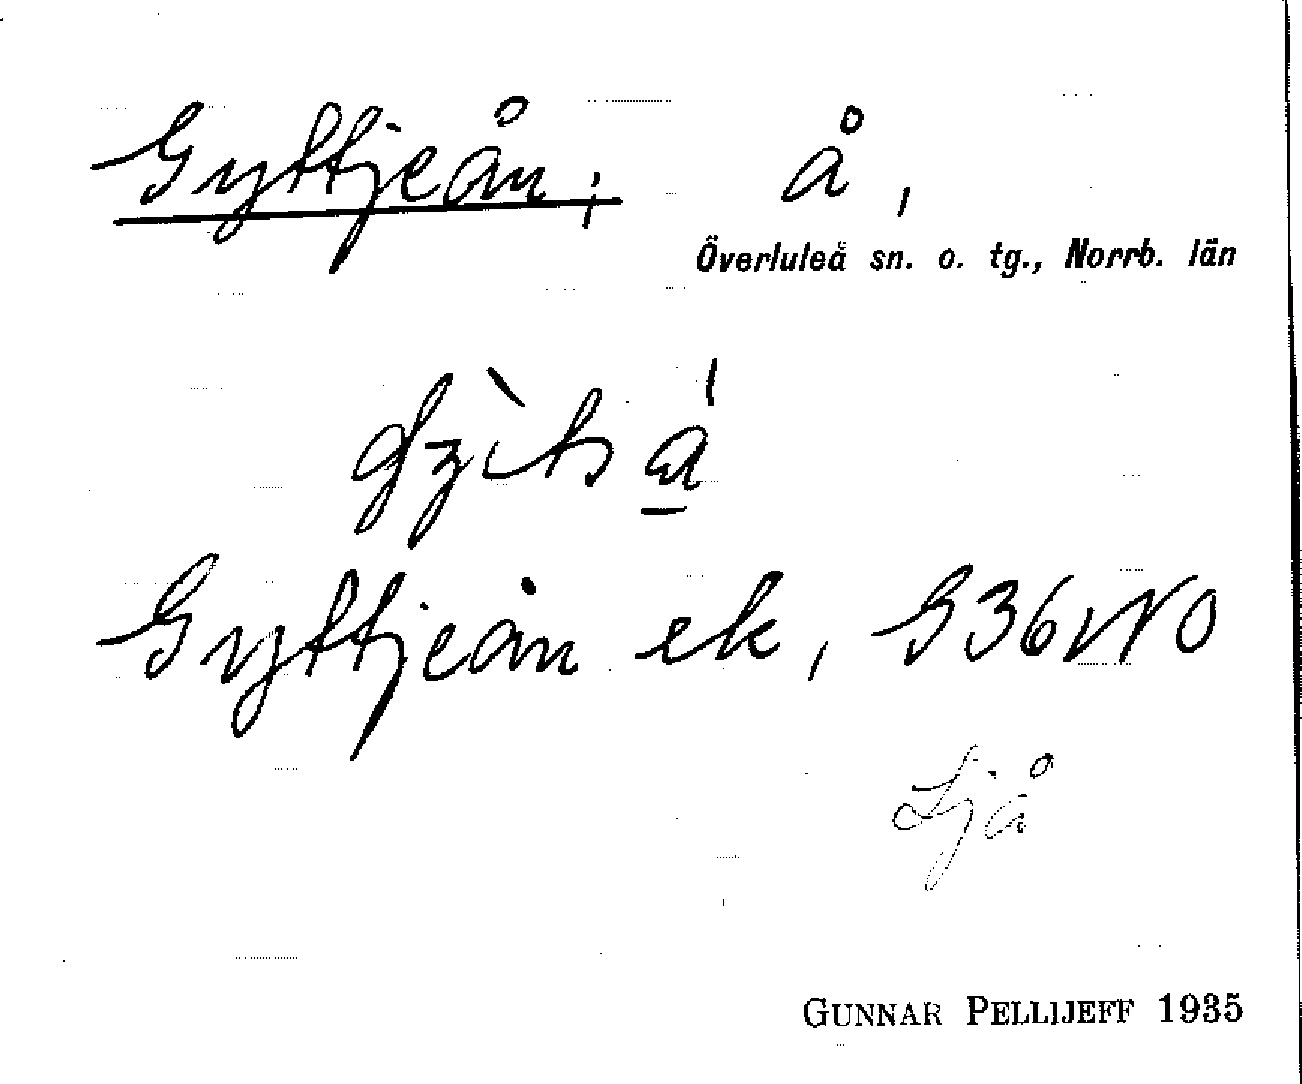 Gyttjeån, å,
Överluleå sn. o. tg., Norrb. län
Gyttjeån ek, G36NO
Sjå
GUNNAR PELLIJEFF 1935